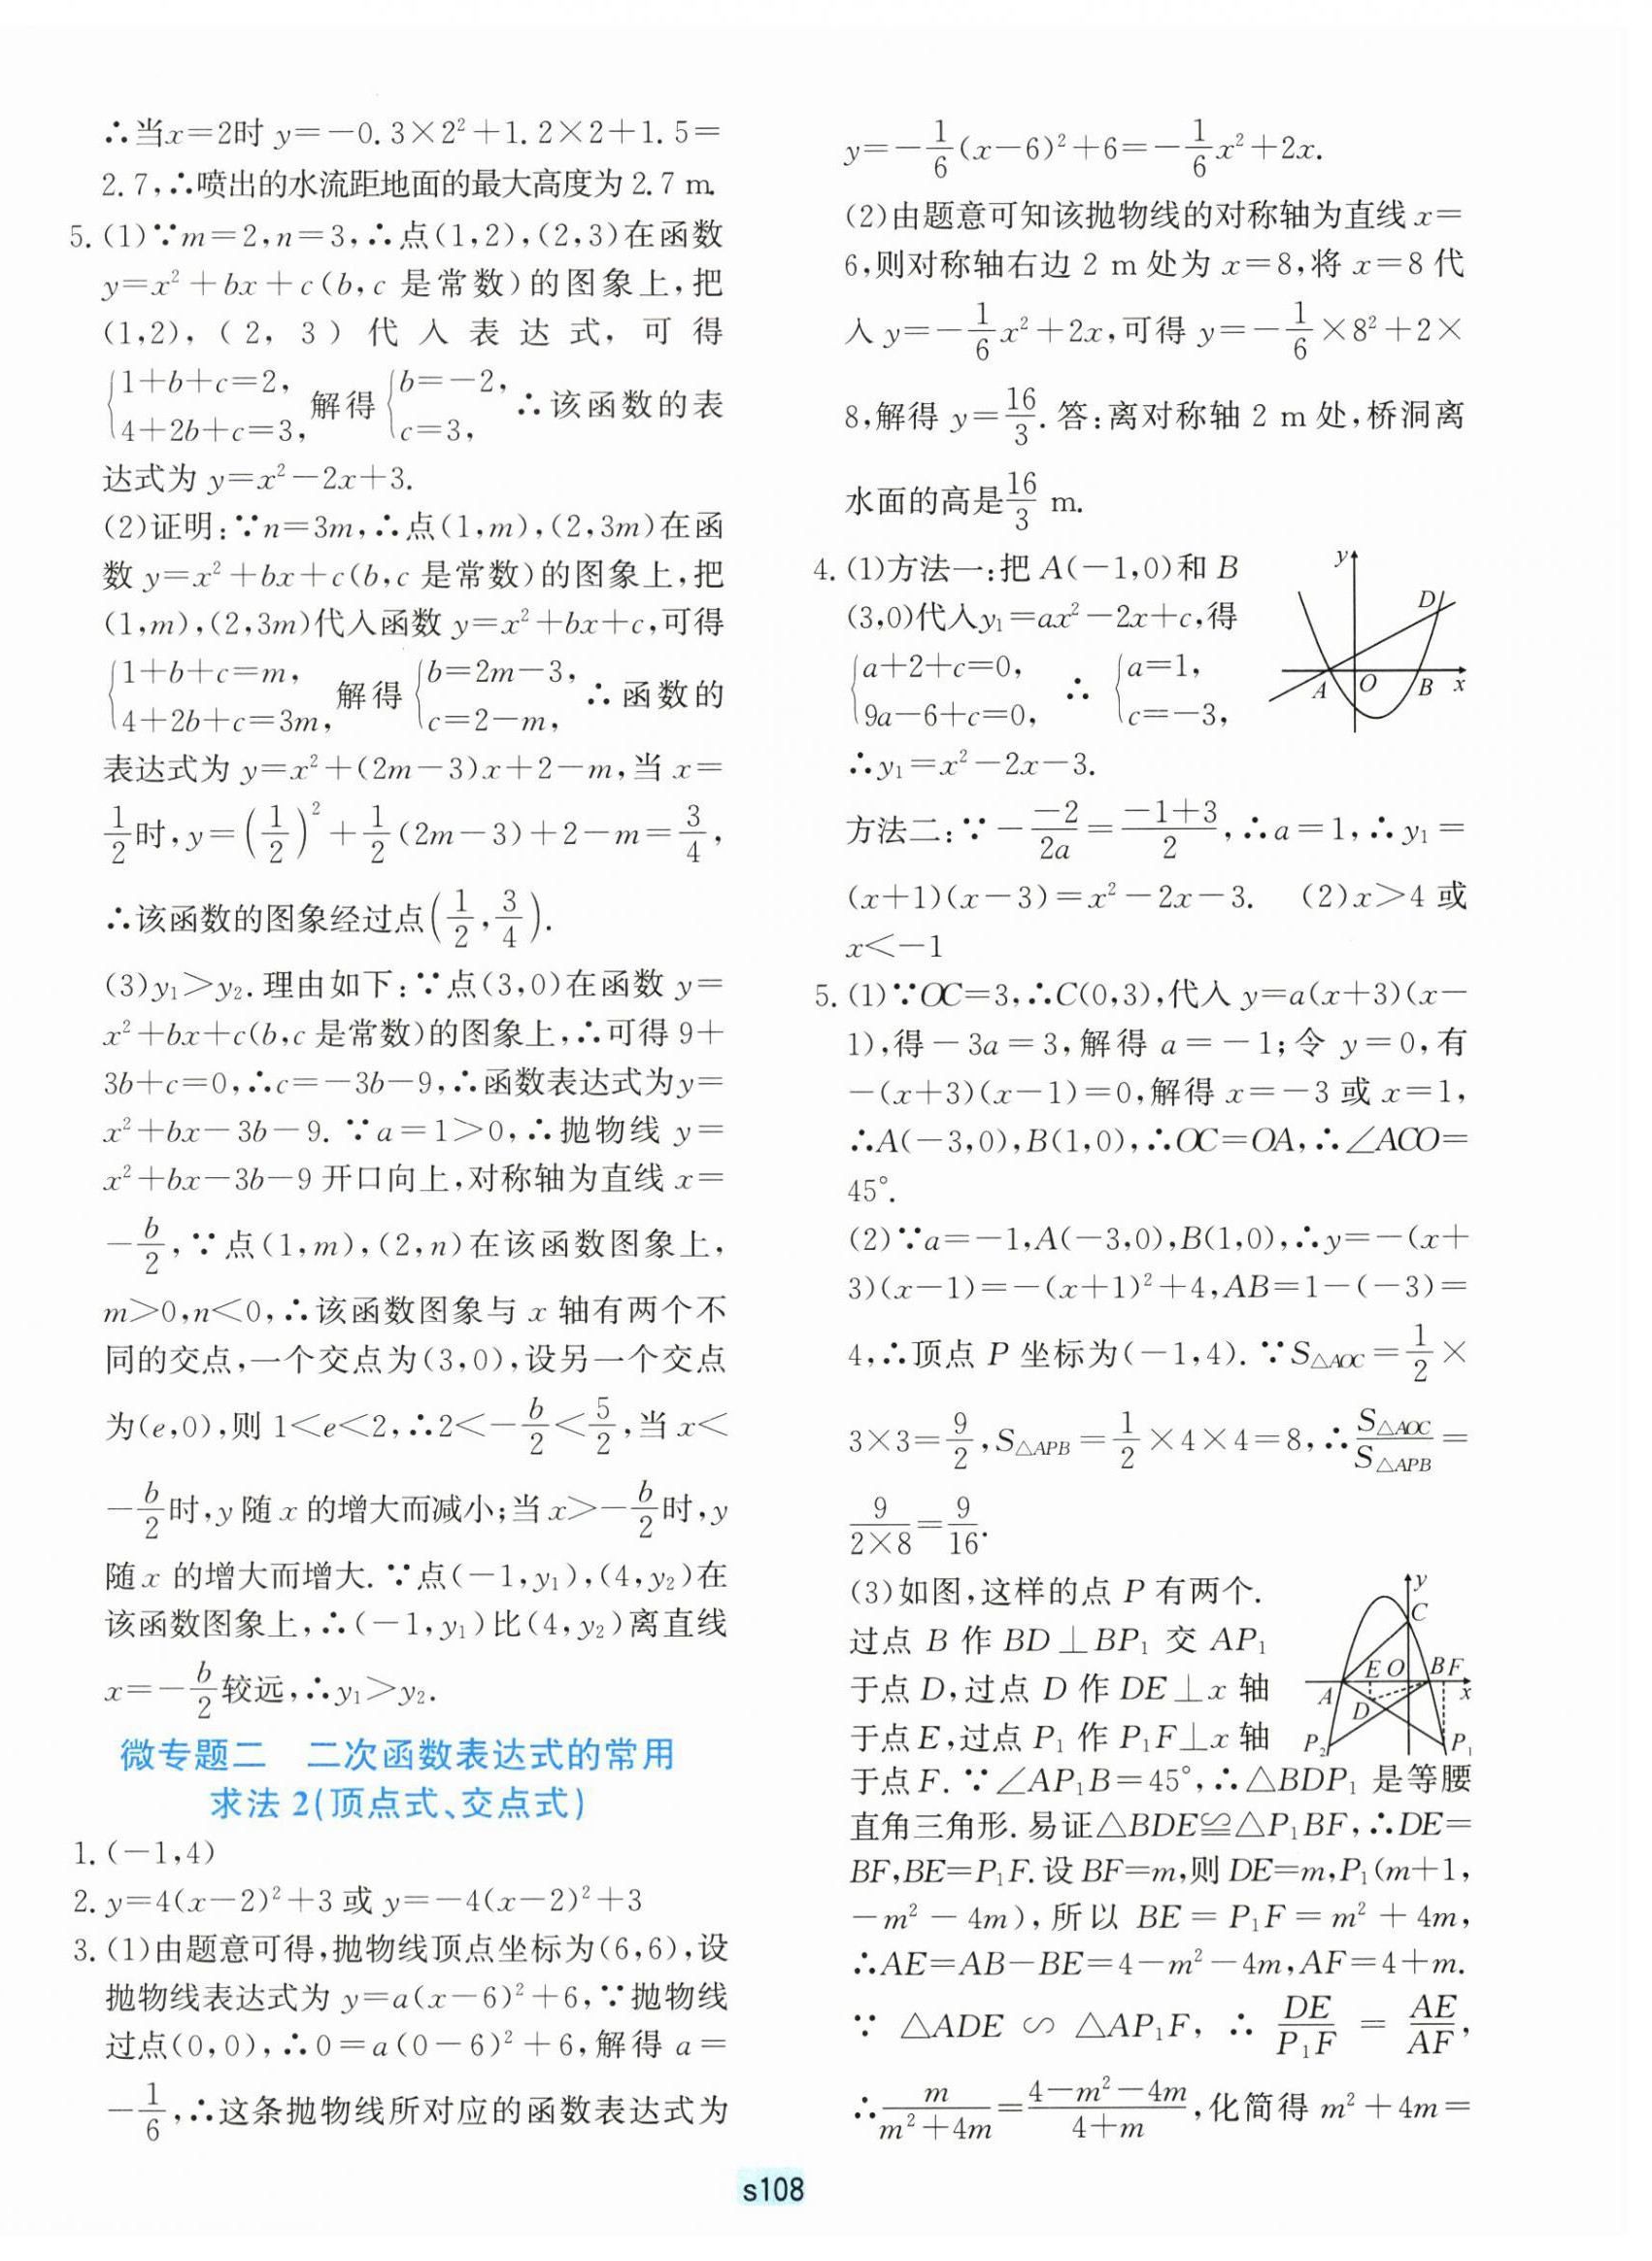 ∴当x=2时 y=-0.3×2²+1.2×2+1.5=
2.7,∴喷出的水流距地面的最大高度为 2.7 m.
5. (1)∵m=2,n=3,∴点(1,2),(2,3)在函数
y=x²+bx+c(b,c 是常数)的图象上,把
(1,2),(2,3)代入表达式,可得
{1+b+c=2, 4+2b+c=3, 解得 {b=-2, c=3, ∴该函数的表
达式为 y=x²-2x+3.
(2)证明:∵n=3m,∴点(1,m),(2,3m)在函
数 y=x²+bx+c(b,c 是常数)的图象上,把
(1,m),(2,3m)代入函数 y=x²+bx+c,可得
{1+b+c=m, 4+2b+c=3m, 解得 {b=2m-3, c=2-m, ∴函数的
表达式为 y=x²+(2m-3)x+2-m,当 x=
1/2时,y=(1/2)²+1/2(2m-3)+2-m=3/4,
∴该函数的图象经过点(1/2,3/4).
(3)y₁>y₂.理由如下:∵点(3,0)在函数 y=
x²+bx+c(b,c 是常数)的图象上,∴可得 9+
3b+c=0,∴c=-3b-9,∴函数表达式为y=
x²+bx-3b-9.∵a=1>0,∴抛物线 y=
x²+bx-3b-9 开口向上,对称轴为直线 x=
-b/2,∵点(1,m),(2,n)在该函数图象上,
m>0,n<0,∴该函数图象与 x 轴有两个不
同的交点,一个交点为(3,0),设另一个交点
为(e,0),则 1<e<2,∴2<-b/2<5/2,当 x<
-b/2时,y 随 x 的增大而减小;当 x>-b/2时,y
随 x 的增大而增大.∵点(-1,y₁),(4,y₂)在
该函数图象上,∴(-1,y₁)比(4,y₂)离直线
x=-b/2较远,∴y₁>y₂.
微专题二 二次函数表达式的常用
求法 2(顶点式、交点式)
1. (-1,4)
2. y=4(x-2)²+3 或 y=-4(x-2)²+3
3. (1)由题意可得,抛物线顶点坐标为(6,6),设
抛物线表达式为 y=a(x-6)²+6,∵抛物线
过点(0,0),∴0=a(0-6)²+6,解得 a=
-1/6,∴这条抛物线所对应的函数表达式为
y=-1/6(x-6)²+6=-1/6x²+2x.
(2)由题意可知该抛物线的对称轴为直线 x=
6,则对称轴右边 2 m 处为 x=8,将 x=8 代
入 y=-1/6x²+2x,可得 y=-1/6×8²+2×
8,解得 y=16/3.答:离对称轴 2 m 处,桥洞离
水面的高是16/3 m.
4. (1)方法一:把 A(-1,0)和 B
(3,0)代入y₁=ax²-2x+c,得
{a+2+c=0, 9a-6+c=0, ∴ {a=1, c=-3,
∴y₁=x²-2x-3.
y
D
A
O
B
x
方法二:∵-(-2)/2a=(-1+3)/2,∴a=1,∴y₁=
(x+1)(x-3)=x²-2x-3. (2)x>4 或
x<-1
5. (1)∵OC=3,∴C(0,3),代入 y=a(x+3)(x-
1),得-3a=3,解得 a=-1;令 y=0,有
-(x+3)(x-1)=0,解得 x=-3 或 x=1,
∴A(-3,0),B(1,0),∴OC=OA,∴∠ACO=
45°.
(2)∵a=-1,A(-3,0),B(1,0),∴y=-(x+
3)(x-1)=-(x+1)²+4,AB=1-(-3)=
4,∴顶点 P 坐标为(-1,4).∵S△AOC=1/2×
3×3=9/2,S△APB=1/2×4×4=8,∴S△AOC/S△APB=
9/(2×8)=9/16.
(3)如图,这样的点 P 有两个.
过点 B 作 BD⊥BP₁ 交 AP₁
于点 D,过点 D 作 DE⊥x 轴
于点 E,过点 P₁ 作 P₁F⊥x 轴
y
C
E O B F
A
x
D
P₂
P₁
于点 F.∵∠AP₁B=45°,∴△BDP₁ 是等腰
直角三角形.易证△BDE≌△P₁BF,∴DE=
BF,BE=P₁F.设 BF=m,则 DE=m,P₁(m+1,
-m²-4m),所以 BE=P₁F=m²+4m,
∴AE=AB-BE=4-m²-4m,AF=4+m.
∵△ADE∽△AP₁F,∴DE/P₁F=AE/AF,
∴m/(m²+4m)=(4-m²-4m)/(4+m),化简得 m²+4m=
s108